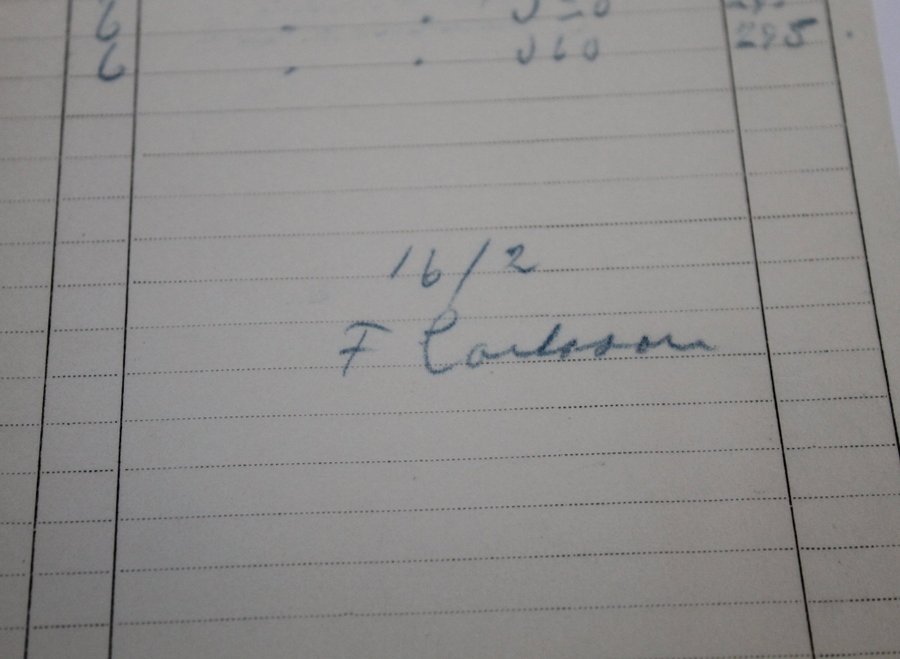 6
6 " " J60 295
16/2
F Carlsson